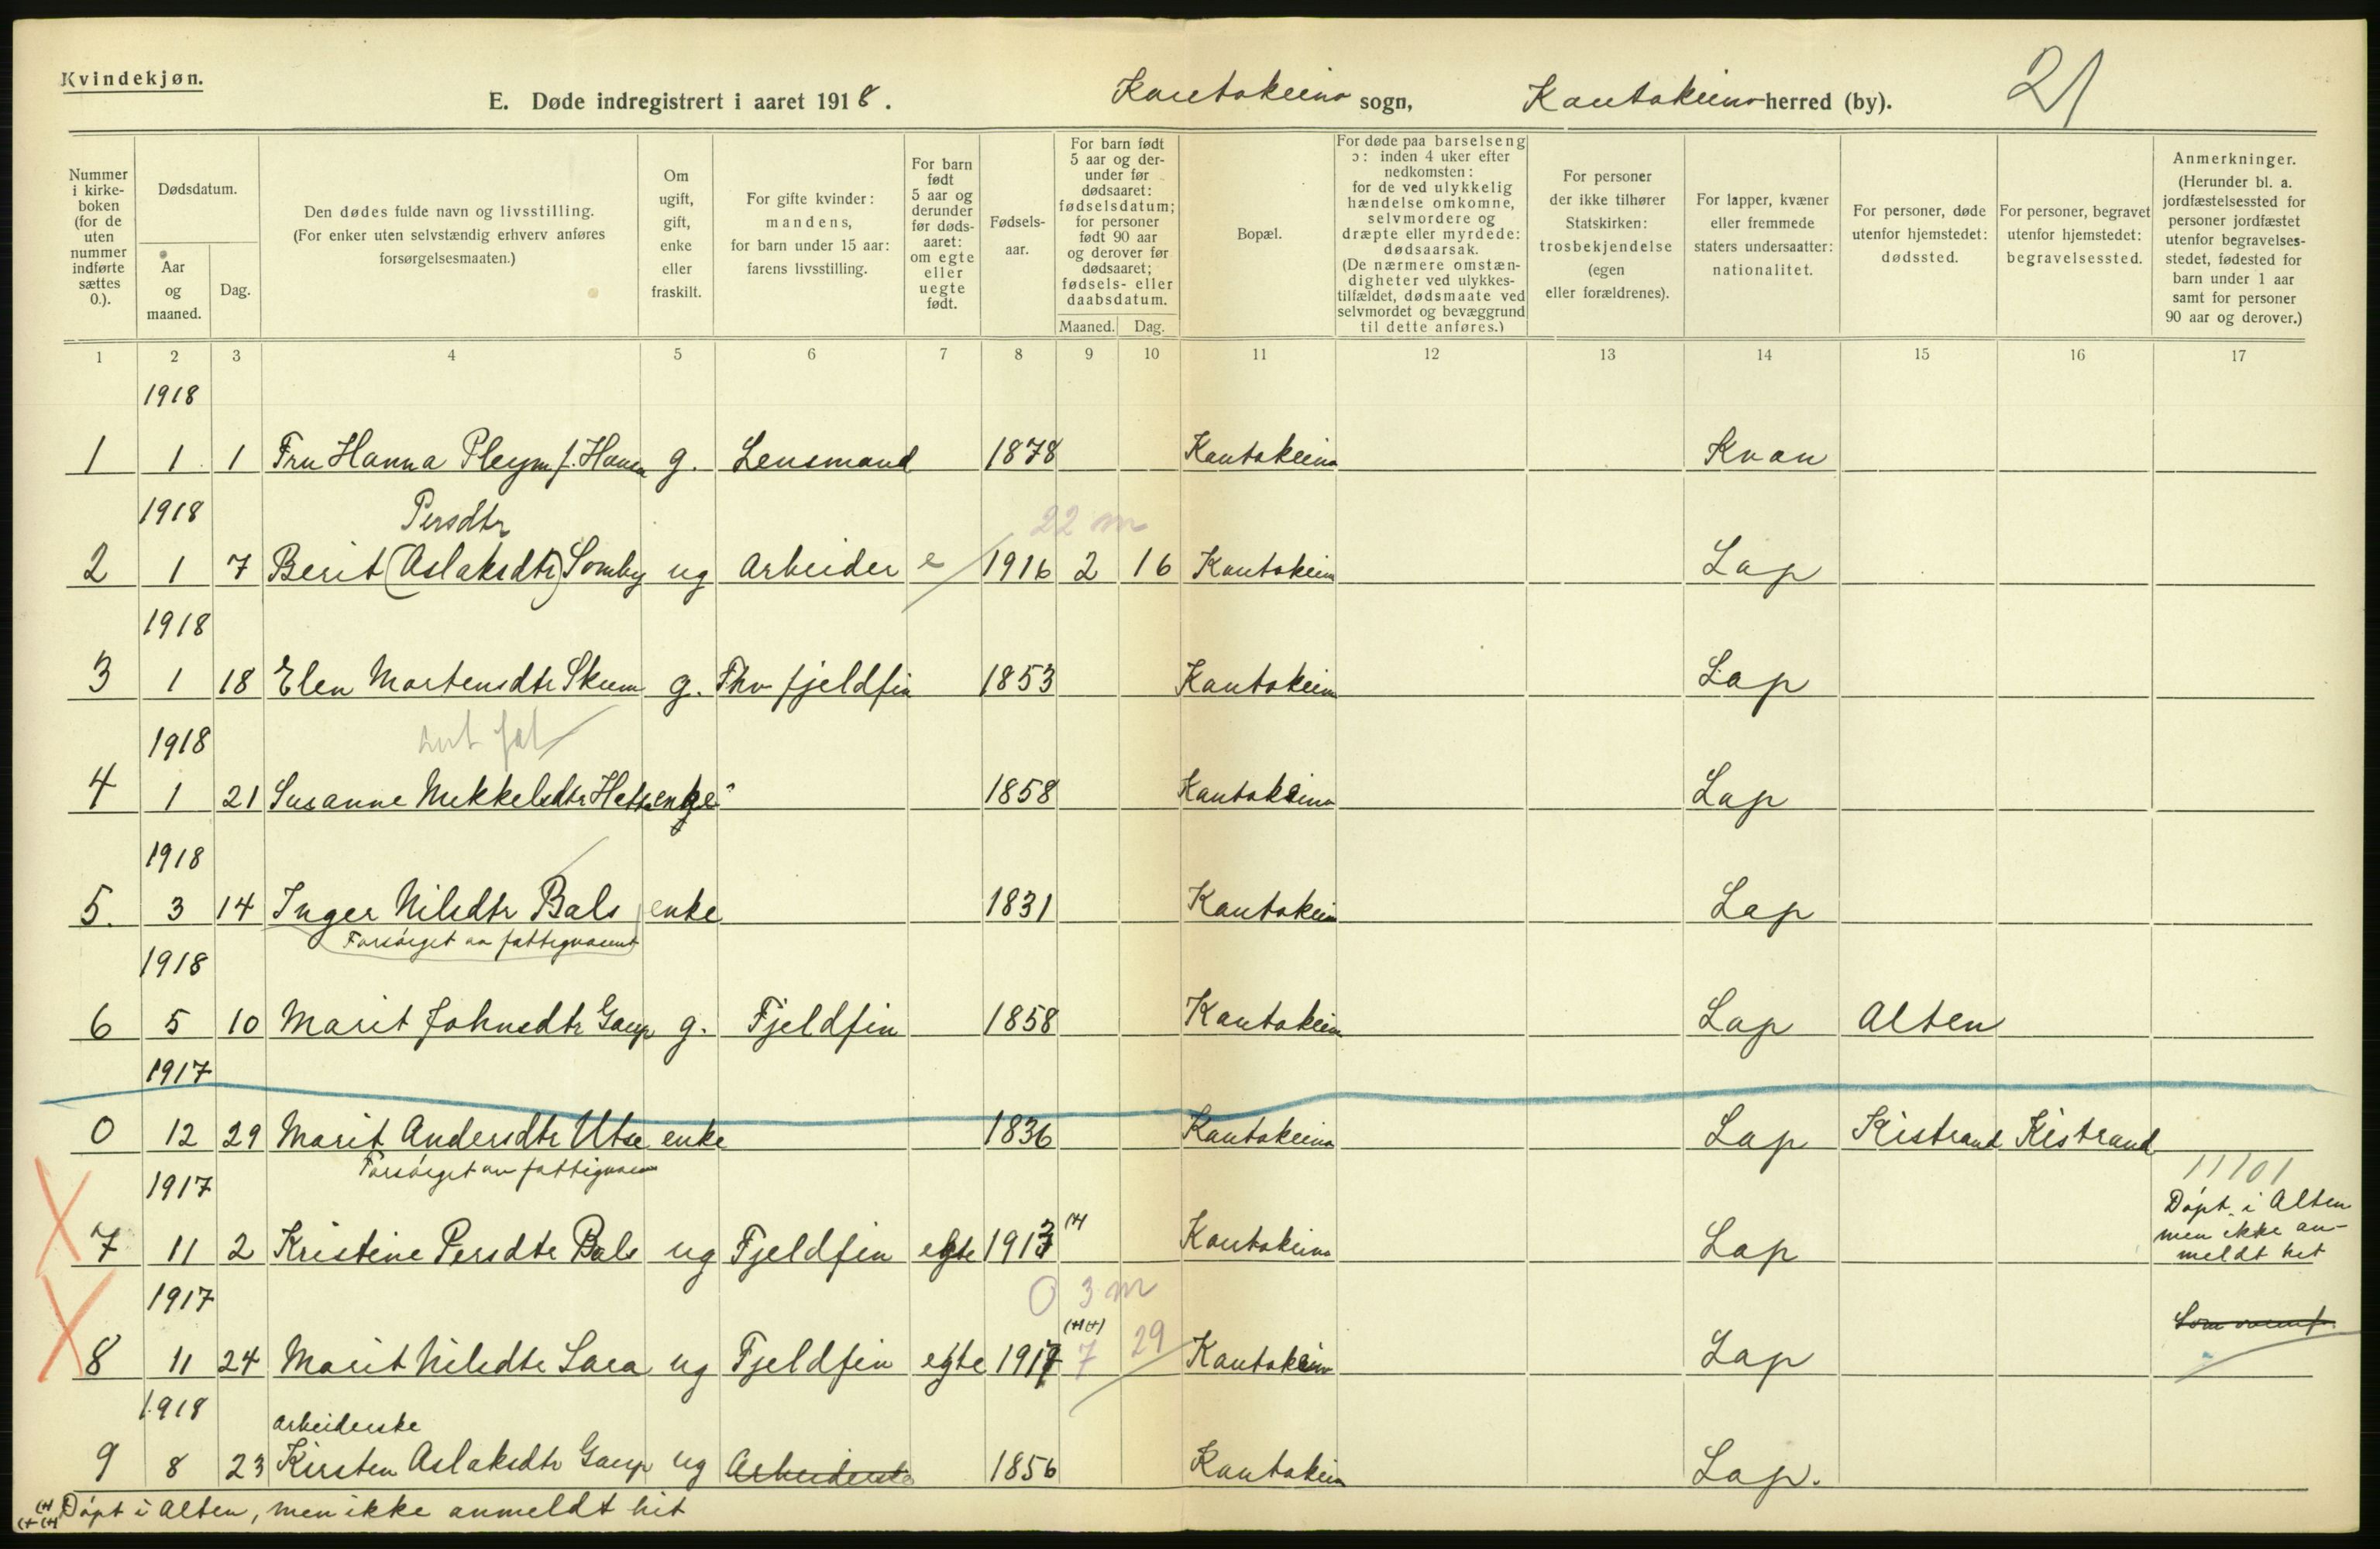 Kvindekjøn.
E. Døde indregistrert i aaret 1918. Kautokeino sogn, Kautokeino herred (by). 21
Nummer i kirke-boken (for de uten nummer indførte sættes 0.).
Dødsdatum.
Aar og maaned.
Dag.
Den dødes fulde navn og livsstilling. (For enker uten selvstændig erhverv anføres forsørgelsesmaaten.)
Om ugift, gift, enke eller fraskilt.
For gifte kvinder: mandens, for barn under 15 aar: farens livsstilling.
For barn født 5 aar og derunder før døds-aaret: om egte eller uegte født.
Fødsels-aar.
For barn født 5 aar og der-under før dødsaaret: fødselsdatum; for personer født 90 aar og derover før dødsaaret; fødsels- eller daabsdatum.
Maaned. Dag.
Bopæl.
For døde paa barselseng ɔ: inden 4 uker efter nedkomsten: for de ved ulykkelig hændelse omkomne, selvmordere og dræpte eller myrdede: dødsaarsak. (De nærmere omstæn-digheter ved ulykkes-tilfældet, dødsmaate ved selvmordet og bevæggrund til dette anføres.)
For personer der ikke tilhører Statskirken: trosbekjendelse (egen eller forældrenes).
For lapper, kvæner eller fremmede staters undersaatter: nationalitet.
For personer, døde utenfor hjemstedet: dødssted.
For personer, begravet utenfor hjemstedet: begravelsessted.
Anmerkninger. (Herunder bl. a. jordfæstelsessted for personer jordfæstet utenfor begravelses-stedet, fødested for barn under 1 aar samt for personer 90 aar og derover.)
1 2 3 4 5 6 7 8 9 10 11 12 13 14 15 16 17
1918
1 1 1 Fru Hanna Pleym f. Hansen g. Lensmand 1878 Kautokeino Kvæn
1918 Persdtr 22 m
2 1 7 Berit (Aslaksdtr) Somby ug Arbeider e 1916 2 16 Kautokeino Lap
1918
3 1 18 Elen Mortensdtr Skum g. Fhv fjeldfin 1853 Kautokeino Lap
1918
4 1 21 Susanne Mekkelsdtr Hætta enke 1858 Kautokeino Lap
1918
5. 3 14 Inger Nilsdtr Bals enke 1831 Kautokeino Lap
Forsørget av fattigvæsenet
1918
6 5 10 Marit Johnsdtr Gaup g. Fjeldfin 1858 Kautokeino Lap Alten
1917
0 12 29 Marit Andersdtr Utse enke 1836 Kautokeino Lap Kistrand Kistrand
Forsørget av fattigvæsen
1917 11101
7 11 2 Kristine Persdtr Bals ug Fjeldfin egte 1913 (+) Kautokeino Lap Døpt i Alten
men ikke an-
meldt hit
1917 0 3 m
8 11 24 Marit Nilsdtr Sara ug Fjeldfin egte 1917 (+)(+) 7 29 Kautokeino Lap
1918 arbeiderske
9 8 23 Kirsten Aslaksdtr Gaup ug Arbeiderske 1856 Kautokeino Lap.
(+) (+(+) Døpt i Alten, men ikke anmeldt hit